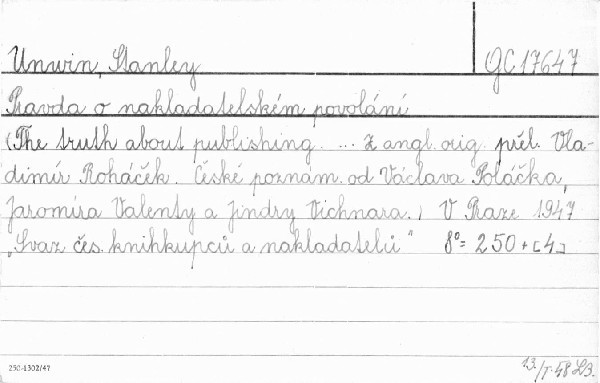 Unwin, Stanley GC 17647
Pravda o nakladatelském povolání
(The truth about publishing. ... Z angl. orig. přel. Vla-
dimír Roháček. České poznám. od Václava Poláčka,
Jaromíra Valenty a Jindry Vichnara.) V Praze 1947
„Svaz čes. knihkupců a nakladatelů" 8° = 250 + [4]
250-1302/47 13./7. 48 LB.